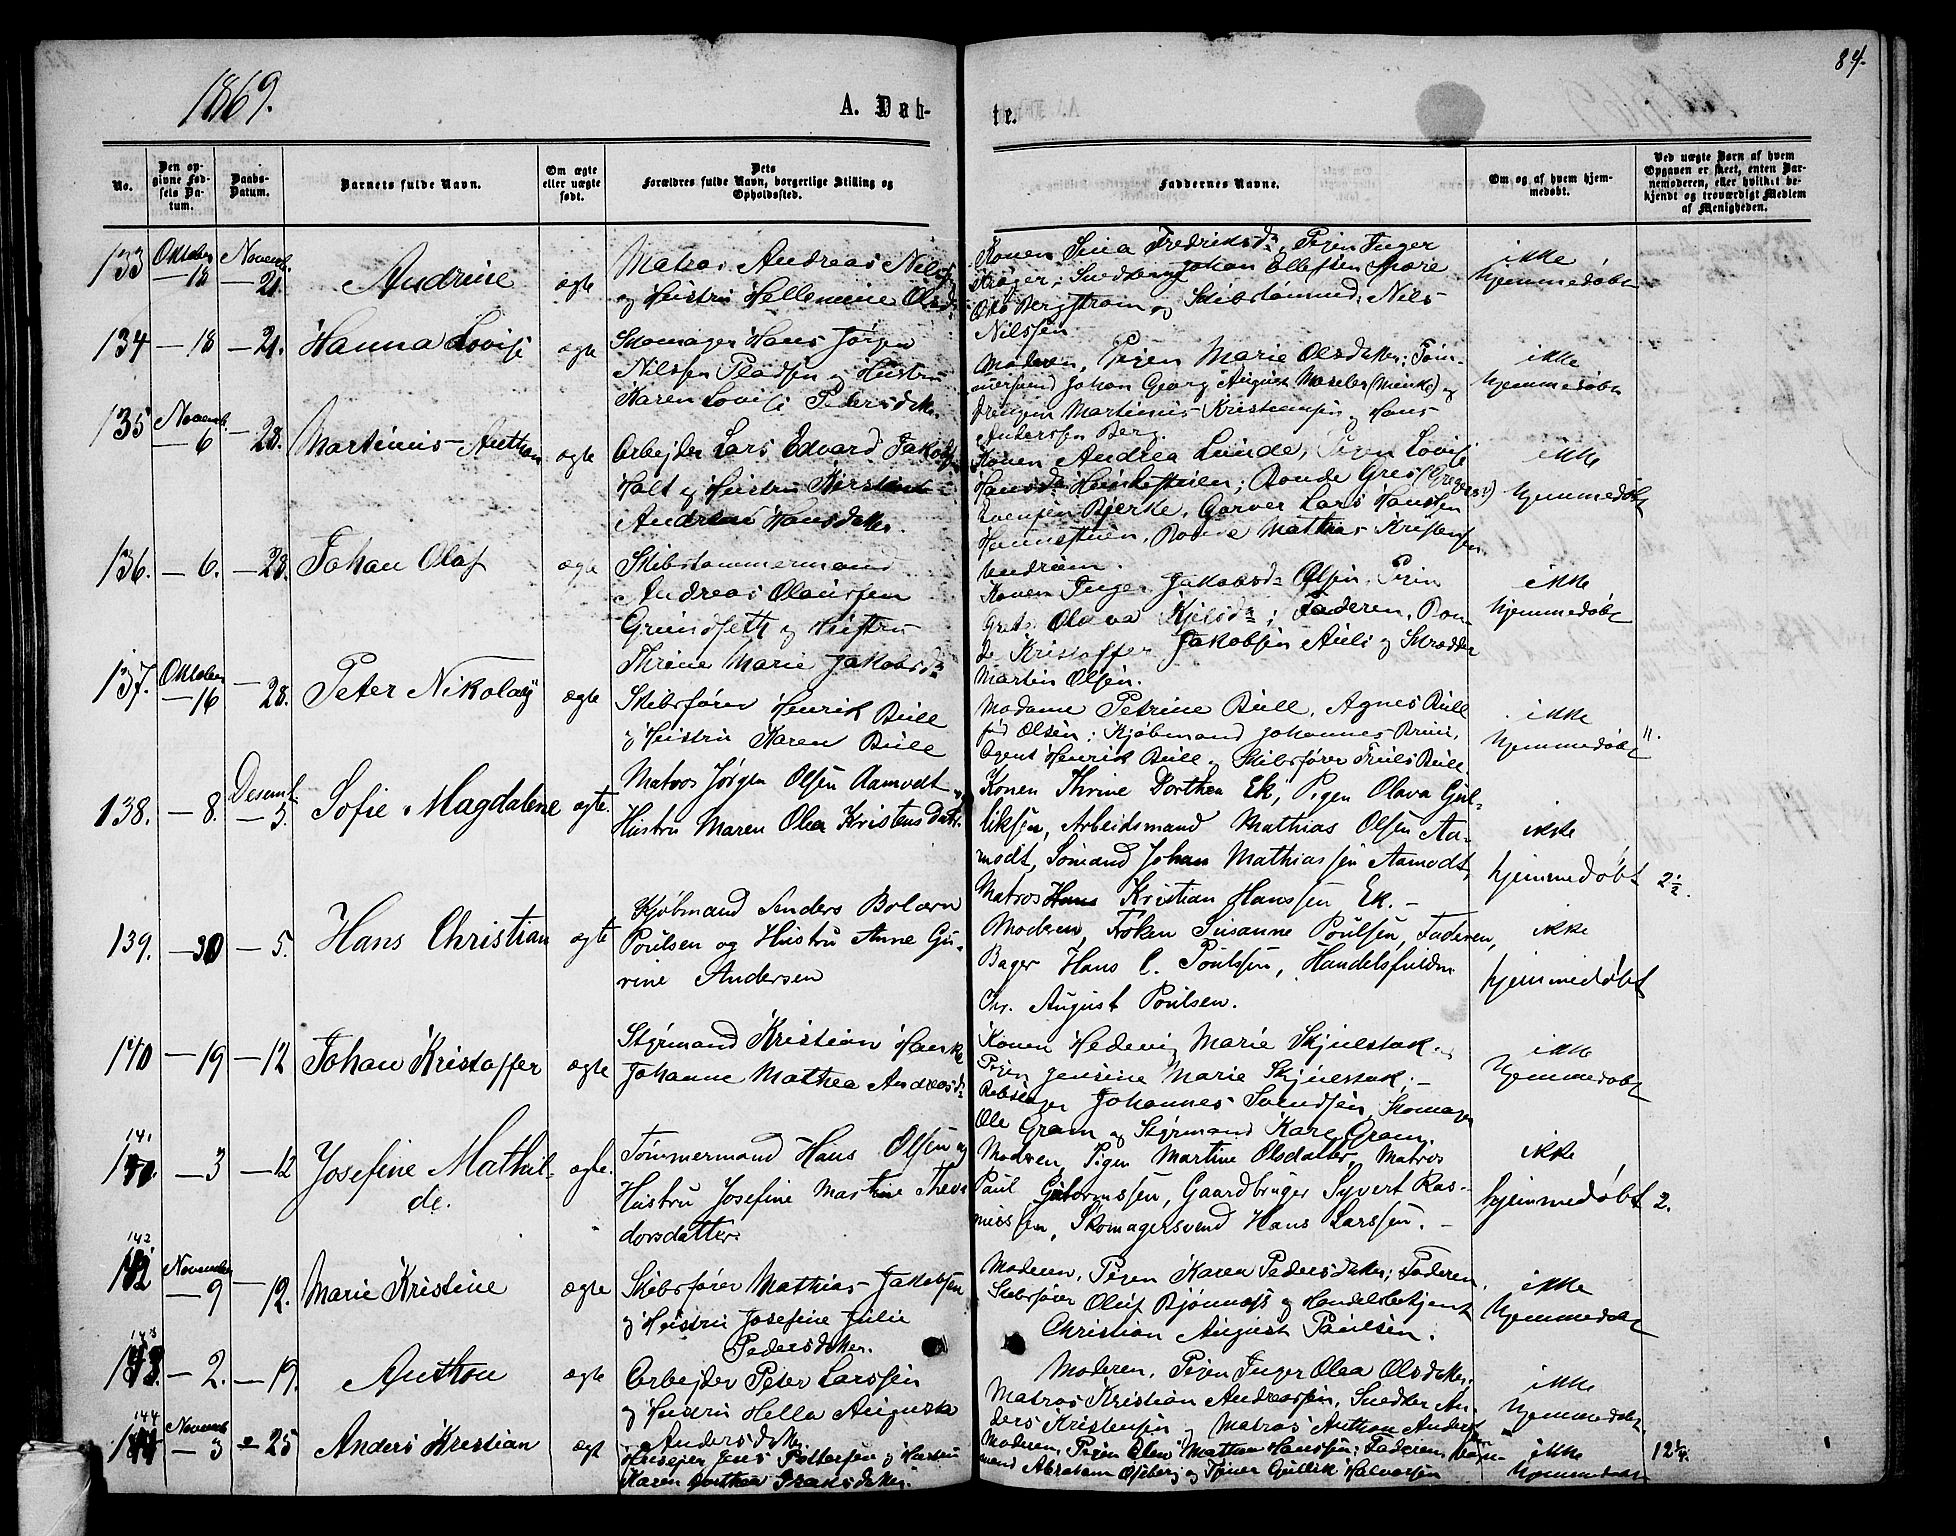 84.
1869.
A. Døb-
te.
No.
Den op-
givne Fød-
sels Da-
tum.
Daabs-
Datum.
Barnets fulde Navn.
Om ægte
eller uægte
født.
Dets
Forældres fulde Navn, borgerlige Stilling og
Opholdssted.
Faddernes Navne.
Om og af hvem hjem-
medøbt.
Ved uægte Børn af hvem
Opgaven er skeet, enten Bar-
nemoderen, eller hvilket be-
kjendt og troværdigt Medlem
af Menigheden.
133 Oktober — 18 Novemb. — 21.
Andrine
ægte
Matros Andreas Nilss.
og Hustru Hellemine Olsd.
Konen Sina Fredriksd., Pigen Inger
Krøger; Johan Ellefsen
Bergstrøm og Skibstømmd. Nils
Nilssen
ikke
hjemmedøbt
134 — 18 — 21.
Hanna Lovise
ægte
Skomager Hans Jørgen
Nilssen og Hustru
Karen Lovise Pedersdatter.
Moderen, Pigen Marie Olsdatter; Tøm-
mersvend Johan Georg August og
drengen Martinius Kristiansen og Hans
Anderssen Berg.
ikke
hjemmedøbt
135 Novemb. — 6 — 28.
Martinius Anthon
ægte
Arbejder Lars Edvard Jakobs.
Holt og Hustru Kirstine
Andrea Hansdatter.
Konen Andrea Lunde, Pigen Lovise
Hansd.; Bonde Gres
Evensen Bjerke, Garver Lars Hanssen
Bonde Mathias Kristensen
ikke
hjemmedøbt
136. — 6. — 28.
Johan Olaf
ægte
Skibstømmermand
Andreas Olaussen
Grundseth og Hustru
Thrine Marie Jakobsd.
Konen Inger Jakobsd. Olsen, Pigen
Grete Olava Kjelsd.; Faderen, Bon-
de Kristoffer Jakobsen Auli og Skrædder
Martin Olsen.
ikke
hjemmedøbt
137. Oktober — 16 — 28.
Peter Nikolaÿ
ægte
Skibsfører Henrik Bull
og Hustru Karen Bull
Madame Petrine Bull, Agnes Bull
fød Olsen; Kjøbmand Johannes Bruu,
Agent Henrik Bull og Skibsfører Truls Bull.
ikke
hjemmedøbt
11.
138. — 8. Desemb. — 5.
Sofie Magdalene
ægte.
Matros Jørgen Olsen Aamodt og
Hustru Maren Olea Kristensdatt.
Konen Thrine Dorthea Ek, Pigen Olava Gul-
liksen, Arbeidsmand Mathias Olsen Aa-
modt, Sømand Johan Mathiassen Aamodt,
Matros Hans Kristian Hanssen Ek. —
ikke
hjemmedøbt
2 1/2.
139. — 30 — 5.
Hans Christian
ægte
Kjøbmand Anders Bolærn
Poulsen og Hustru Anne Gu-
rine Andersen
Moderen, Frøken Susanne Poulsen, Faderen,
Bager Hans C. Poulsen, Handelsfuldm.
Chr. August Poulsen.
ikke
hjemmedøbt
140 — 19 — 12
Johan Kristoffer
ægte
Styrmand Kristian
Johanne Mathea Andreasd.
Konen Hedevig Marie Skjelstak
Pigen Jensine Marie Skjelstak; —
Rebslager Johannes Svendsen, Skomager
Ole Gram og Styrmand Kare Gram.
ikke
hjemmedøbt
141 — 3 — 12
Josefine Mathil-
de.
ægte.
Tømmermand Hans Olsen og
Hustru Josefine Martine Theo-
dorsdatter.
Moderen, Pigen Martine Olsdatter, Matros
Paul Guttormssen, Gaardbruger Syvert Ras-
mussen, Skomagersvend Hans Larssen. —
ikke
hjemmedøbt
2.
142 November — 9 — 12.
Marie Kristine
ægte
Skibsfører Mathias Jakobsen
og Hustru Josefine Julie
Pedersdatter.
Moderen, Pigen Karen Pedersdatter; Faderen,
Skibsfører Oluf Bjønness og Handelsbetjent
Christian August Paulsen.
ikke
hjemmedøbt
143 — 2. — 19.
Anthon
ægte
Arbejder Peter Larssen
og Hustru Hella Augusta
Andersdatter
Moderen, Pigen Inger Olea Olsdatter,
Matros Kristian Andreassen, Snedker An-
ders Kristensen og Matros Anthon Anders.
ikke
hjemmedøbt
144 Novemb. — 3 — 25
Anders Kristian
ægt
Jens Pettersen og Hustru
Karen Dorthea
Moderen, Pigen Mathea Hanssen; Faderen,
Abraham og Gullik Halvorsen
ikke
hjemmedøbt
12 1/4.